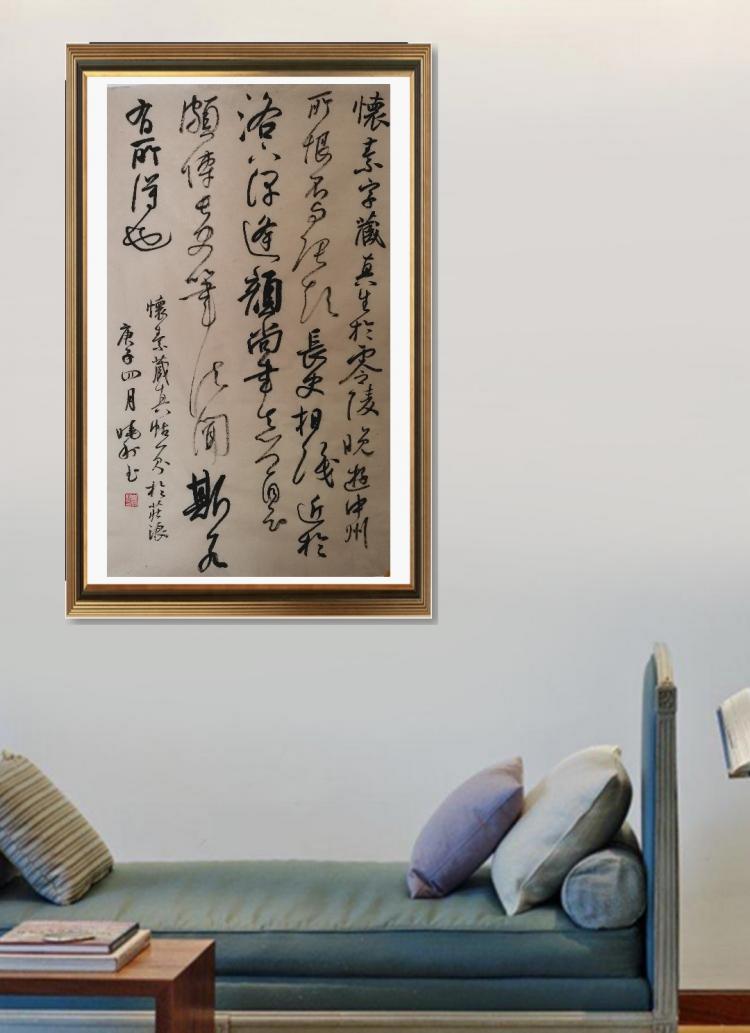 懷素字藏真生於零陵晚遊中州
所恨不與張顛長史相識近於
洛下偶逢顏尚書真卿自云
頗傳長史筆法聞斯若
有所得也
懷素藏真帖一於莊浪
庚子四月曉